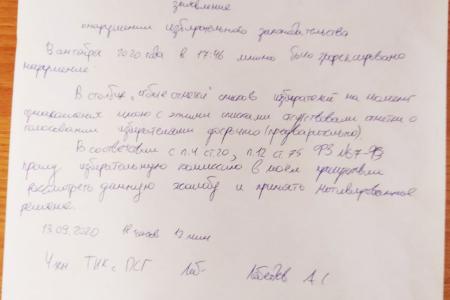 заявление
о нарушении избирательного законодательства
В 2020 года в 17:46 мною было зафиксировано
нарушение
В столбце "особые отметки" списков избирателей на момент
ознакомления мною с этими списками отсутствовали отметки о
голосовании избирателями досрочно (предварительно)
В соответствии с п.4 ст.20, п.12 ст.75 ФЗ №67-ФЗ
прошу избирательную комиссию в моем присутствии
рассмотреть данную жалобу и принять мотивированное
решение.
13.09.2020 часов мин
Член ТИК с ПСГ Лебедев А С